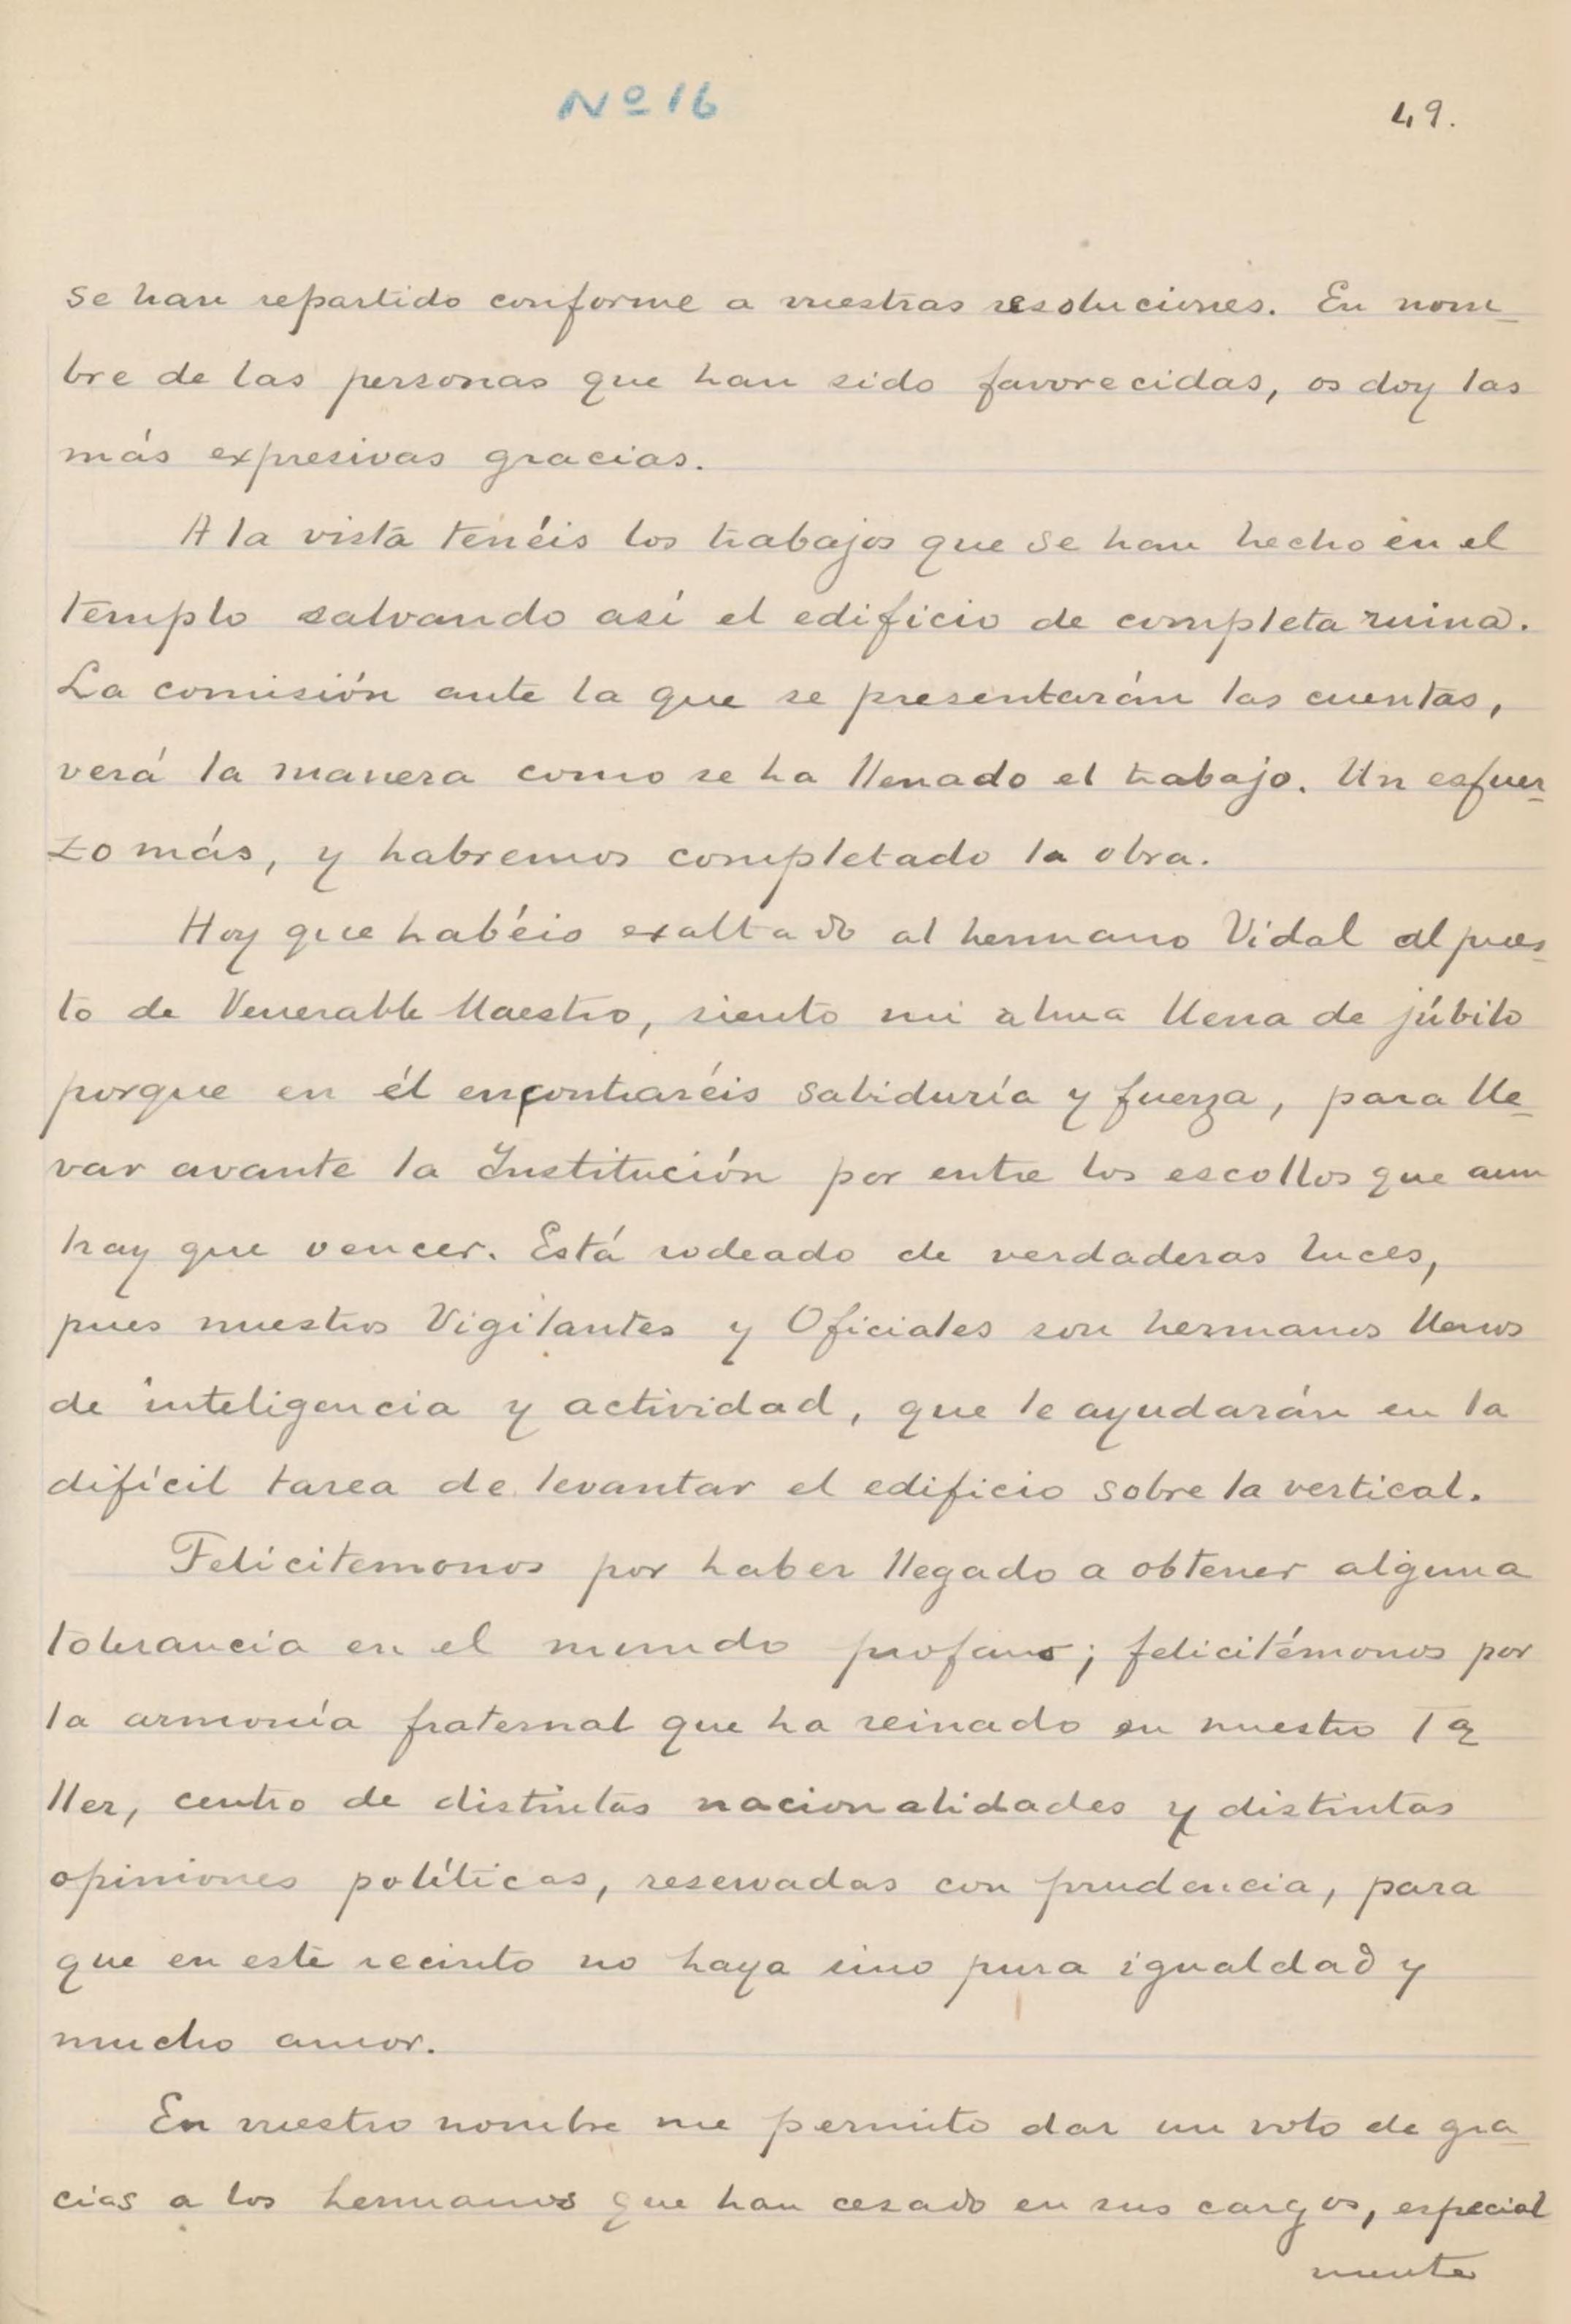 Nº 16
49.
se han repartido conforme a vuestras resoluciones. En nom-
bre de las personas que han sido favorecidas, os doy las
más expresivas gracias.
A la vista tenéis los trabajos que se han hecho en el
templo salvando así el edificio de completa ruina.
La comisión ante la que se presentarán las cuentas,
verá la manera como se ha llenado el trabajo. Un esfuer-
zo más, y habremos completado la obra.
Hoy que habéis exaltado al hermano Vidal al pues-
to de Venerable Maestro, siento mi alma llena de júbilo
porque en él encontraréis sabiduría y fuerza, para lle-
var avante la Institución por entre los escollos que aun
hay que vencer. Está rodeado de verdaderas luces,
pues nuestros Vigilantes y Oficiales son hermanos llenos
de inteligencia y actividad, que le ayudarán en la
difícil tarea de levantar el edificio sobre la vertical.
Felicitemonos por haber llegado a obtener alguna
tolerancia en el mundo profano; felicitémonos por
la armonía fraternal que ha reinado en nuestro Ta-
ller, centro de distintas nacionalidades y distintas
opiniones políticas, reservadas con prudencia, para
que en este recinto no haya sino pura igualdad y
mucho amor.
En vuestro nombre me permito dar un voto de gra-
cias a los hermanos que han cesado en sus cargos, especial
mente